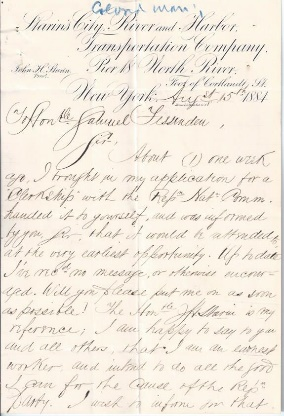 Colored man.
Starin's City, River and Harbor
Transportation Company.
John H. Starin
Prest.
Pier 18 North River.
Foot of Cortlandt St.
New York, Augt 15th 1884
To Honble Gabriel Fessenden,
Sir.
About (1) one week
ago, I brought in my application for a
Clerkship with the Repn Nat Comm.
handed it to yourself, and was informed
by you Sir, that it would be attended to
at the very earliest opportunity. Up to date
I've recd no message, or otherwise
Will you please put me on as soon
as possible! The Honble J H Starin is my
reference; I am happy to say to you
and all others, that I am an earnest
worker, and intend to do all the good
I can for the cause of the Repn
Party. I wish to inform you that